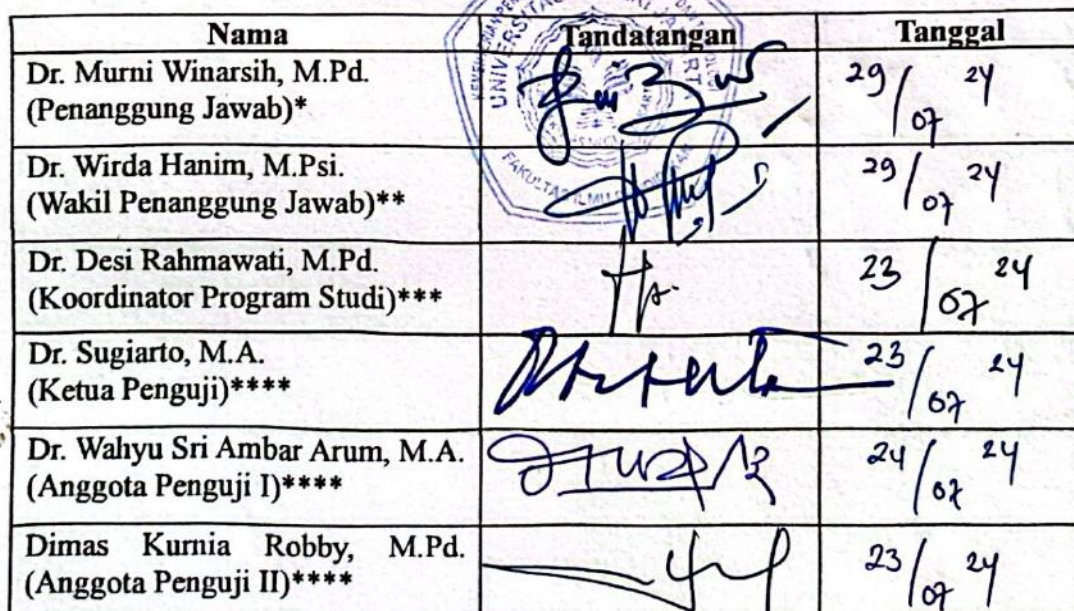 Nama Tandatangan Tanggal
Dr. Murni Winarsih, M.Pd.
(Penanggung Jawab)*
29/07 24
Dr. Wirda Hanim, M.Psi.
(Wakil Penanggung Jawab)**
29/07 24
Dr. Desi Rahmawati, M.Pd.
(Koordinator Program Studi)***
23/07 24
Dr. Sugiarto, M.A.
(Ketua Penguji)****
23/07 24
Dr. Wahyu Sri Ambar Arum, M.A.
(Anggota Penguji I)****
24/07 24
Dimas Kurnia Robby, M.Pd.
(Anggota Penguji II)****
23/07 24
UNIVERSITAS
FAKULTAS ILMU